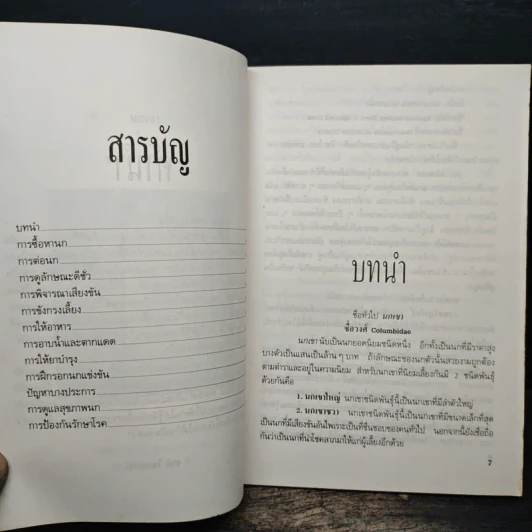 สารบัญ
บทนำ
การซื้อหานก
การต่อนก
การดูลักษณะดีชั่ว
การพิจารณาเสียงขัน
การขังกรงเลี้ยง
การให้อาหาร
การอาบน้ำและตากแดด
การให้ยาบำรุง
การฝึกรอกนกแข่งขัน
ปัญหาบางประการ
การดูแลสุขภาพนก
การป้องกันรักษาโรค
บทนำ
ชื่อทั่วไป นกเขา
ชื่อวงศ์ Columbidae
นกเขา นับเป็นนกยอดนิยมชนิดหนึ่ง อีกทั้งเป็นนกที่มีราคาสูง
บางตัวเป็นแสนเป็นล้าน ๆ บาท ถ้าลักษณะของนกตัวนั้นสวยงามถูกต้อง
ตามตำราและอยู่ในความนิยม สำหรับนกเขาที่นิยมเลี้ยงกันมี 2 ชนิดพันธุ์
ด้วยกันคือ
1. นกเขาใหญ่ นกเขาชนิดพันธุ์นี้เป็นนกเขาที่มีลำตัวใหญ่
2. นกเขาชวา นกเขาชนิดพันธุ์นี้เป็นนกเขาที่มีขนาดเล็กที่สุด
เป็นนกที่มีเสียงขันอันไพเราะเป็นที่ชื่นชอบของคนทั่วไป นอกจากนี้ยังเชื่อถือ
กันว่าเป็นนกที่นำโชคลาภมาให้แก่ผู้เลี้ยงอีกด้วย
7